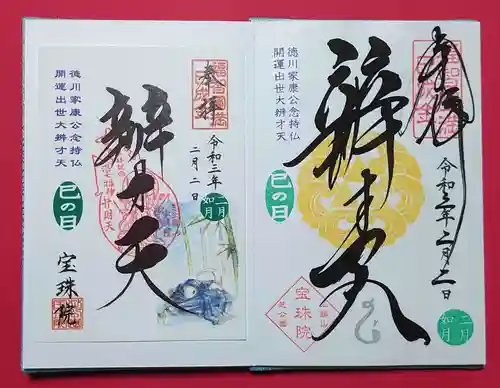 奉拝
令和三年
二月二日
二月
如月
辨才天
徳川家康公念持仏
開運出世大辨才天
巳の日
宝珠院
奉拝
令和三年二月二日
二月
如月
辨才天
徳川家康公念持仏
開運出世大辨才天
巳の日
宝珠院
芝公園